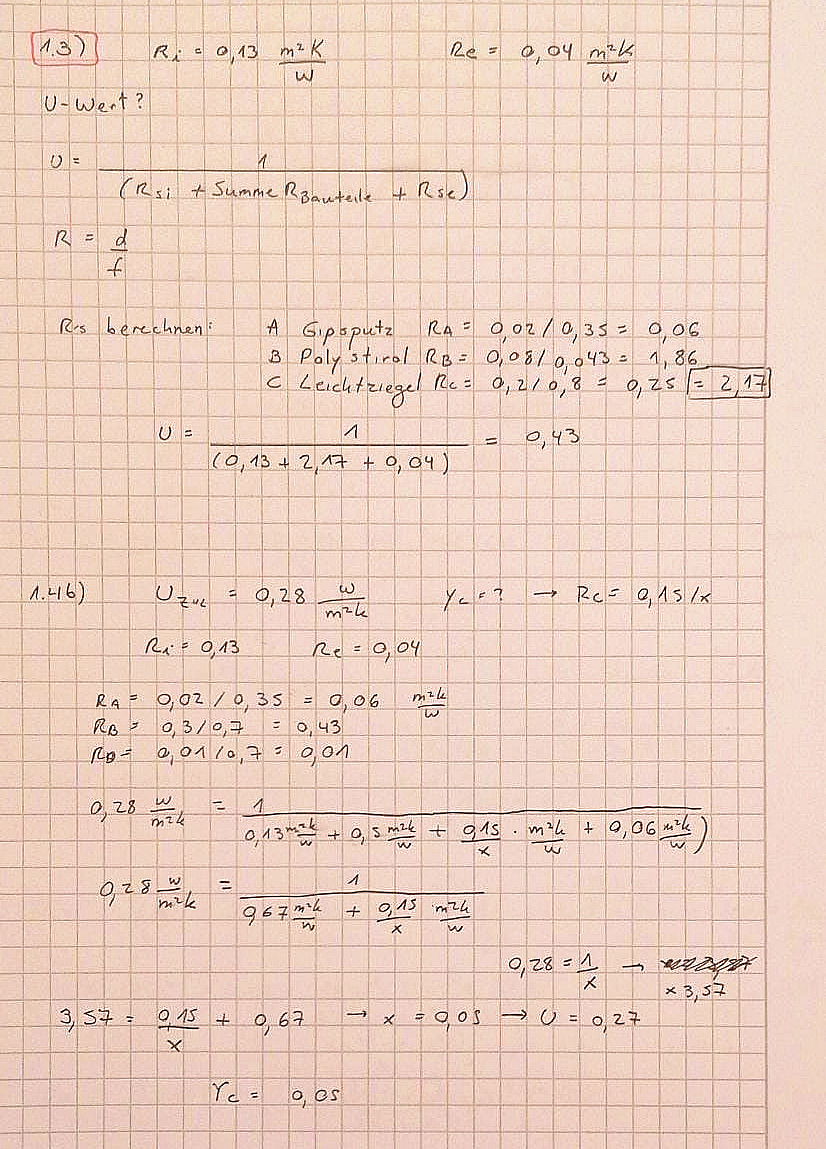 1.3) Ri = 0,13 m²K/W Re = 0,04 m²K/W
U-Wert?
U = 1/(Rsi + Summe RBauteile + Rse)
R = d/f
R's berechnen: A Gipsputz RA = 0,02/0,35 = 0,06
B Polystirol RB = 0,08/0,043 = 1,86
C Leichtziegel Rc = 0,2/0,8 = 0,25 = 2,17
U = 1/(0,13 + 2,17 + 0,04) = 0,43
1.4b) Uzul = 0,28 W/m²K Yc = ? → Rc = 0,15/x
Ri = 0,13 Re = 0,04
RA = 0,02/0,35 = 0,06 m²K/W
RB = 0,3/0,7 = 0,43
RD = 0,01/0,7 = 0,01
0,28 W/m²K = 1/0,13 m²K/W + 0,5 m²K/W + 0,15/x · m²K/W + 0,06 m²K/W)
0,28 W/m²K = 1/0,67 m²K/W + 0,15/x · m²K/W
0,28 = 1/x →
x 3,57
3,57 = 0,15/x + 0,67 → x = 0,05 → U = 0,27
Yc = 0,05